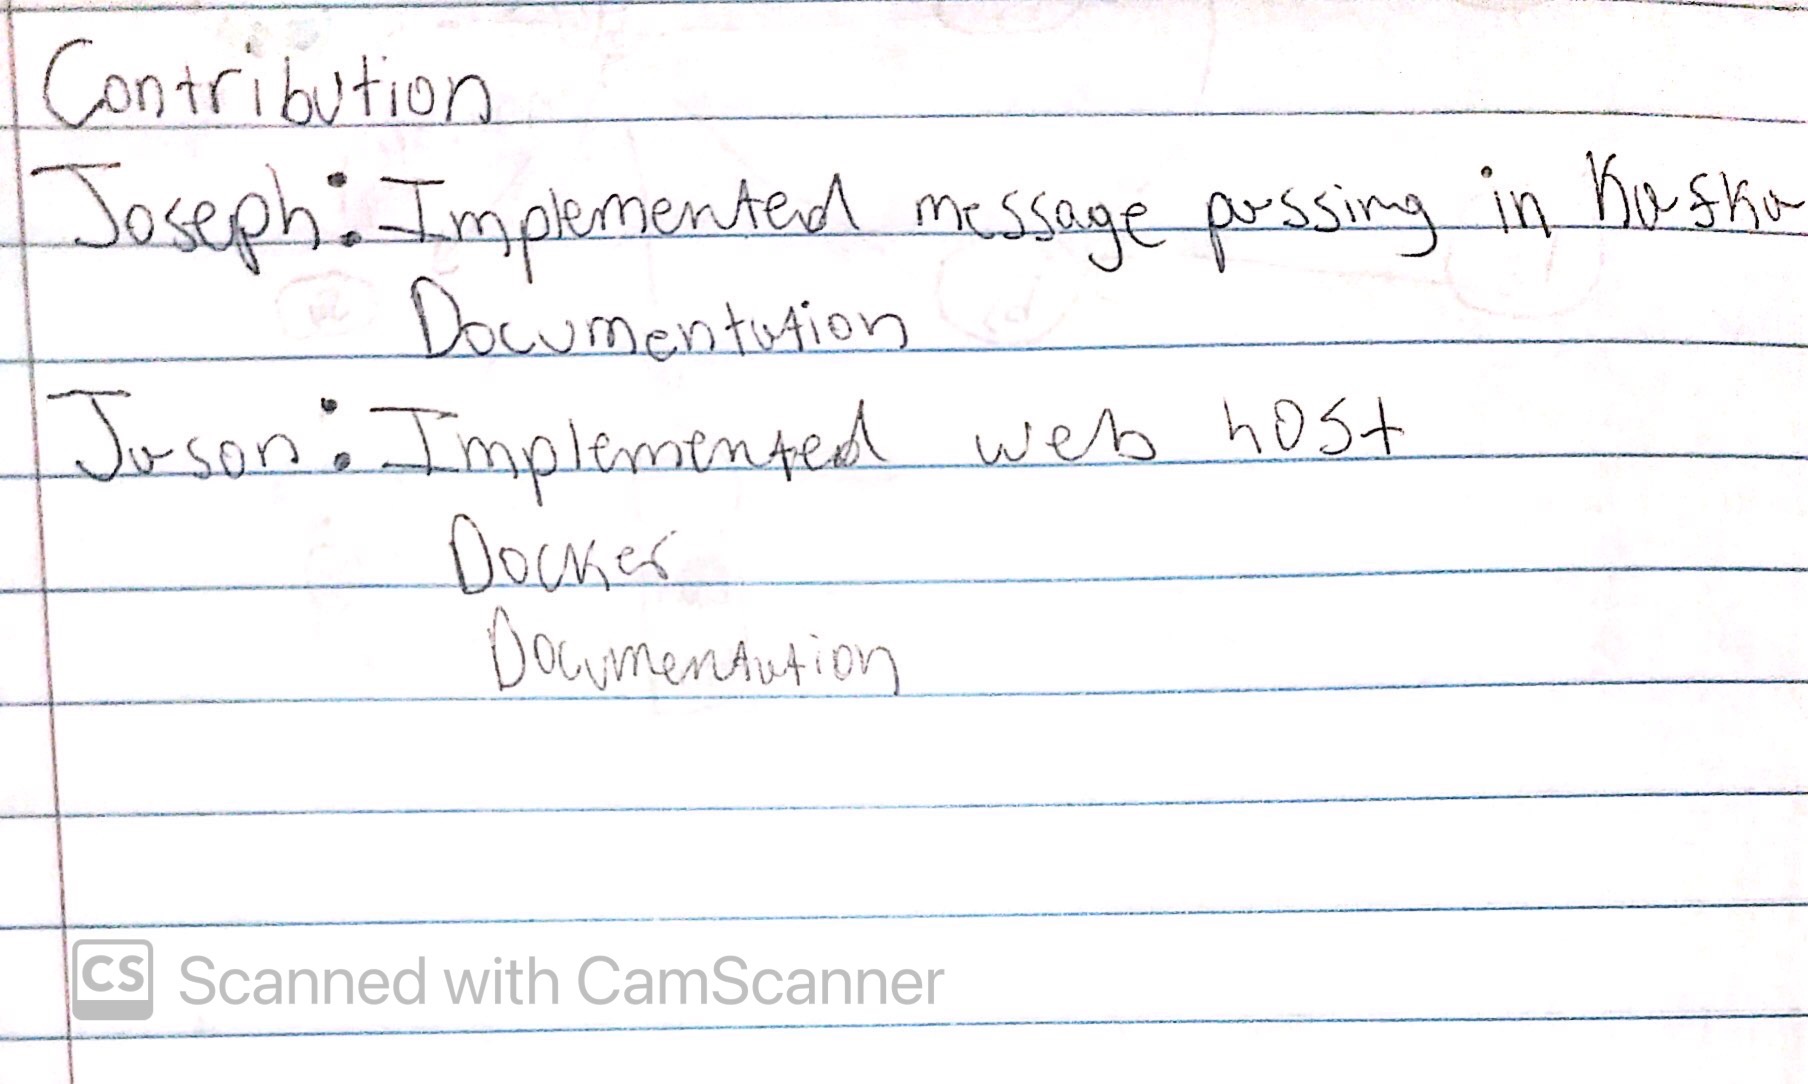 Contribution
Joseph: Implemented message passing in Kafka
Documentation
Jason: Implemented web host
Docker
Documentation
CS Scanned with CamScanner